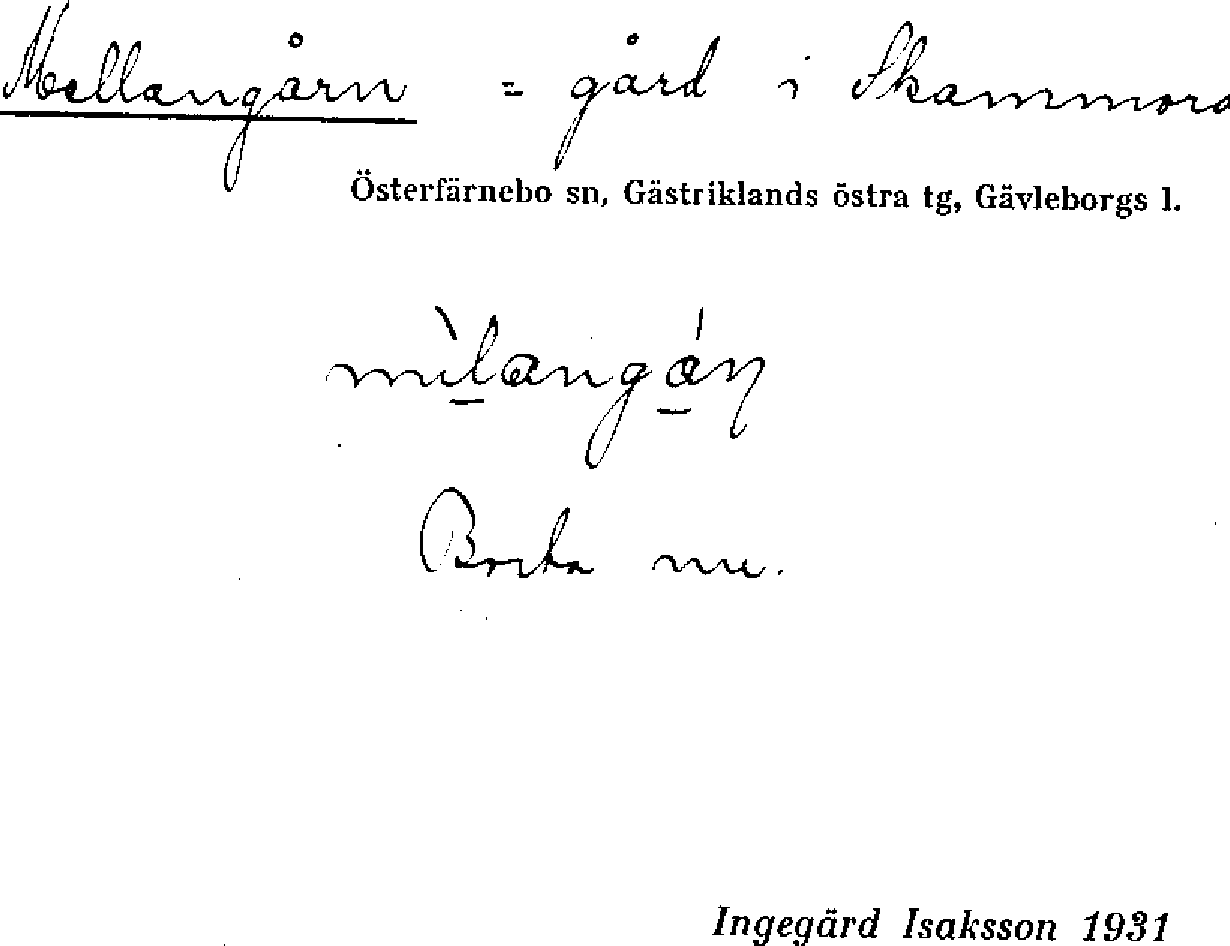 Mellangårn = gård i Skammora
Österfärnebo sn, Gästriklands östra tg, Gävleborgs l.
mìlangán
Borta nu.
Ingegärd Isaksson 1931